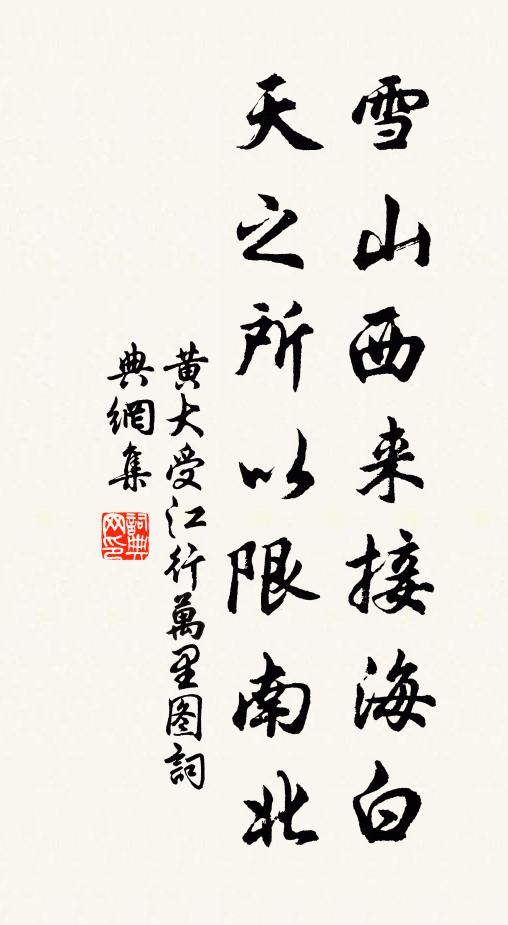 雪山西来接海白
天之所以限南北
黄大受江行萬里图詞
典網集
詞典
网印